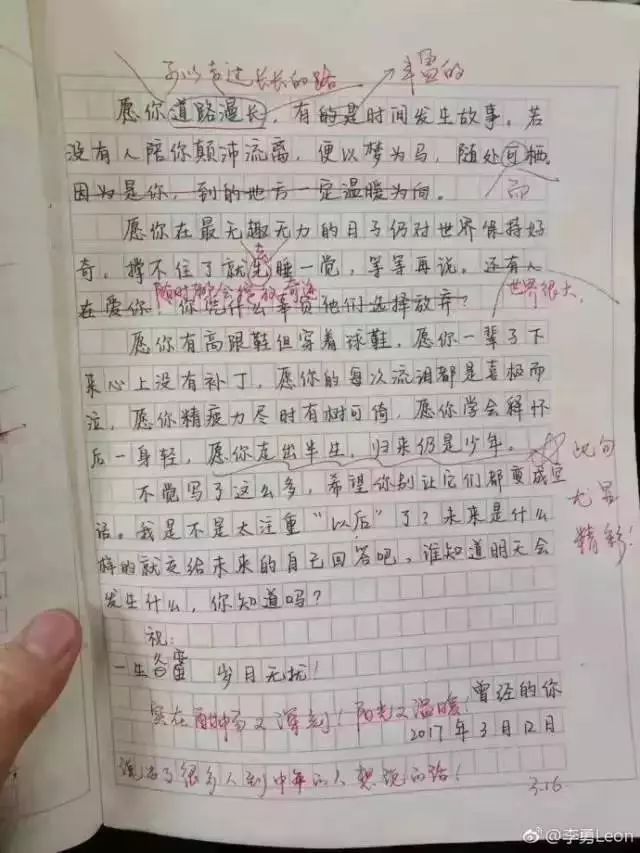 可以走过长长的路 丰盈的
愿你道路漫长，有的是时间发生故事。若
没有人陪你颠沛流离，便以梦为马，随处可栖。
因为是你，到的地方一定温暖为向。 而
愿你在最无趣无力的日子仍对世界保持好
奇，撑不住了就先睡一觉，等等再说。还有人
随时都会绽放奇迹 世界很大
在爱你，你凭什么辜负他们选择放弃？
愿你有高跟鞋但穿着球鞋，愿你一辈子下
来心上没有补丁，愿你的每次流泪都是喜极而
泣，愿你精疲力尽时有树可倚，愿你学会释怀
后一身轻，愿你走出半生，归来仍是少年。 此句
不觉写了这么多，希望你别让它们都变成空 尤其
话。我是不是太注重“以后”了？未来是什么 精彩！
样的就交给未来的自己回答吧，谁知道明天会
发生什么，你知道吗？
祝：
一生 岁月无扰！
曾经的你
实在 又深刻！阳光又温暖！
2017年3月12日
说出了很多人到中年的人想说的话！
3.16
@李勇Leon